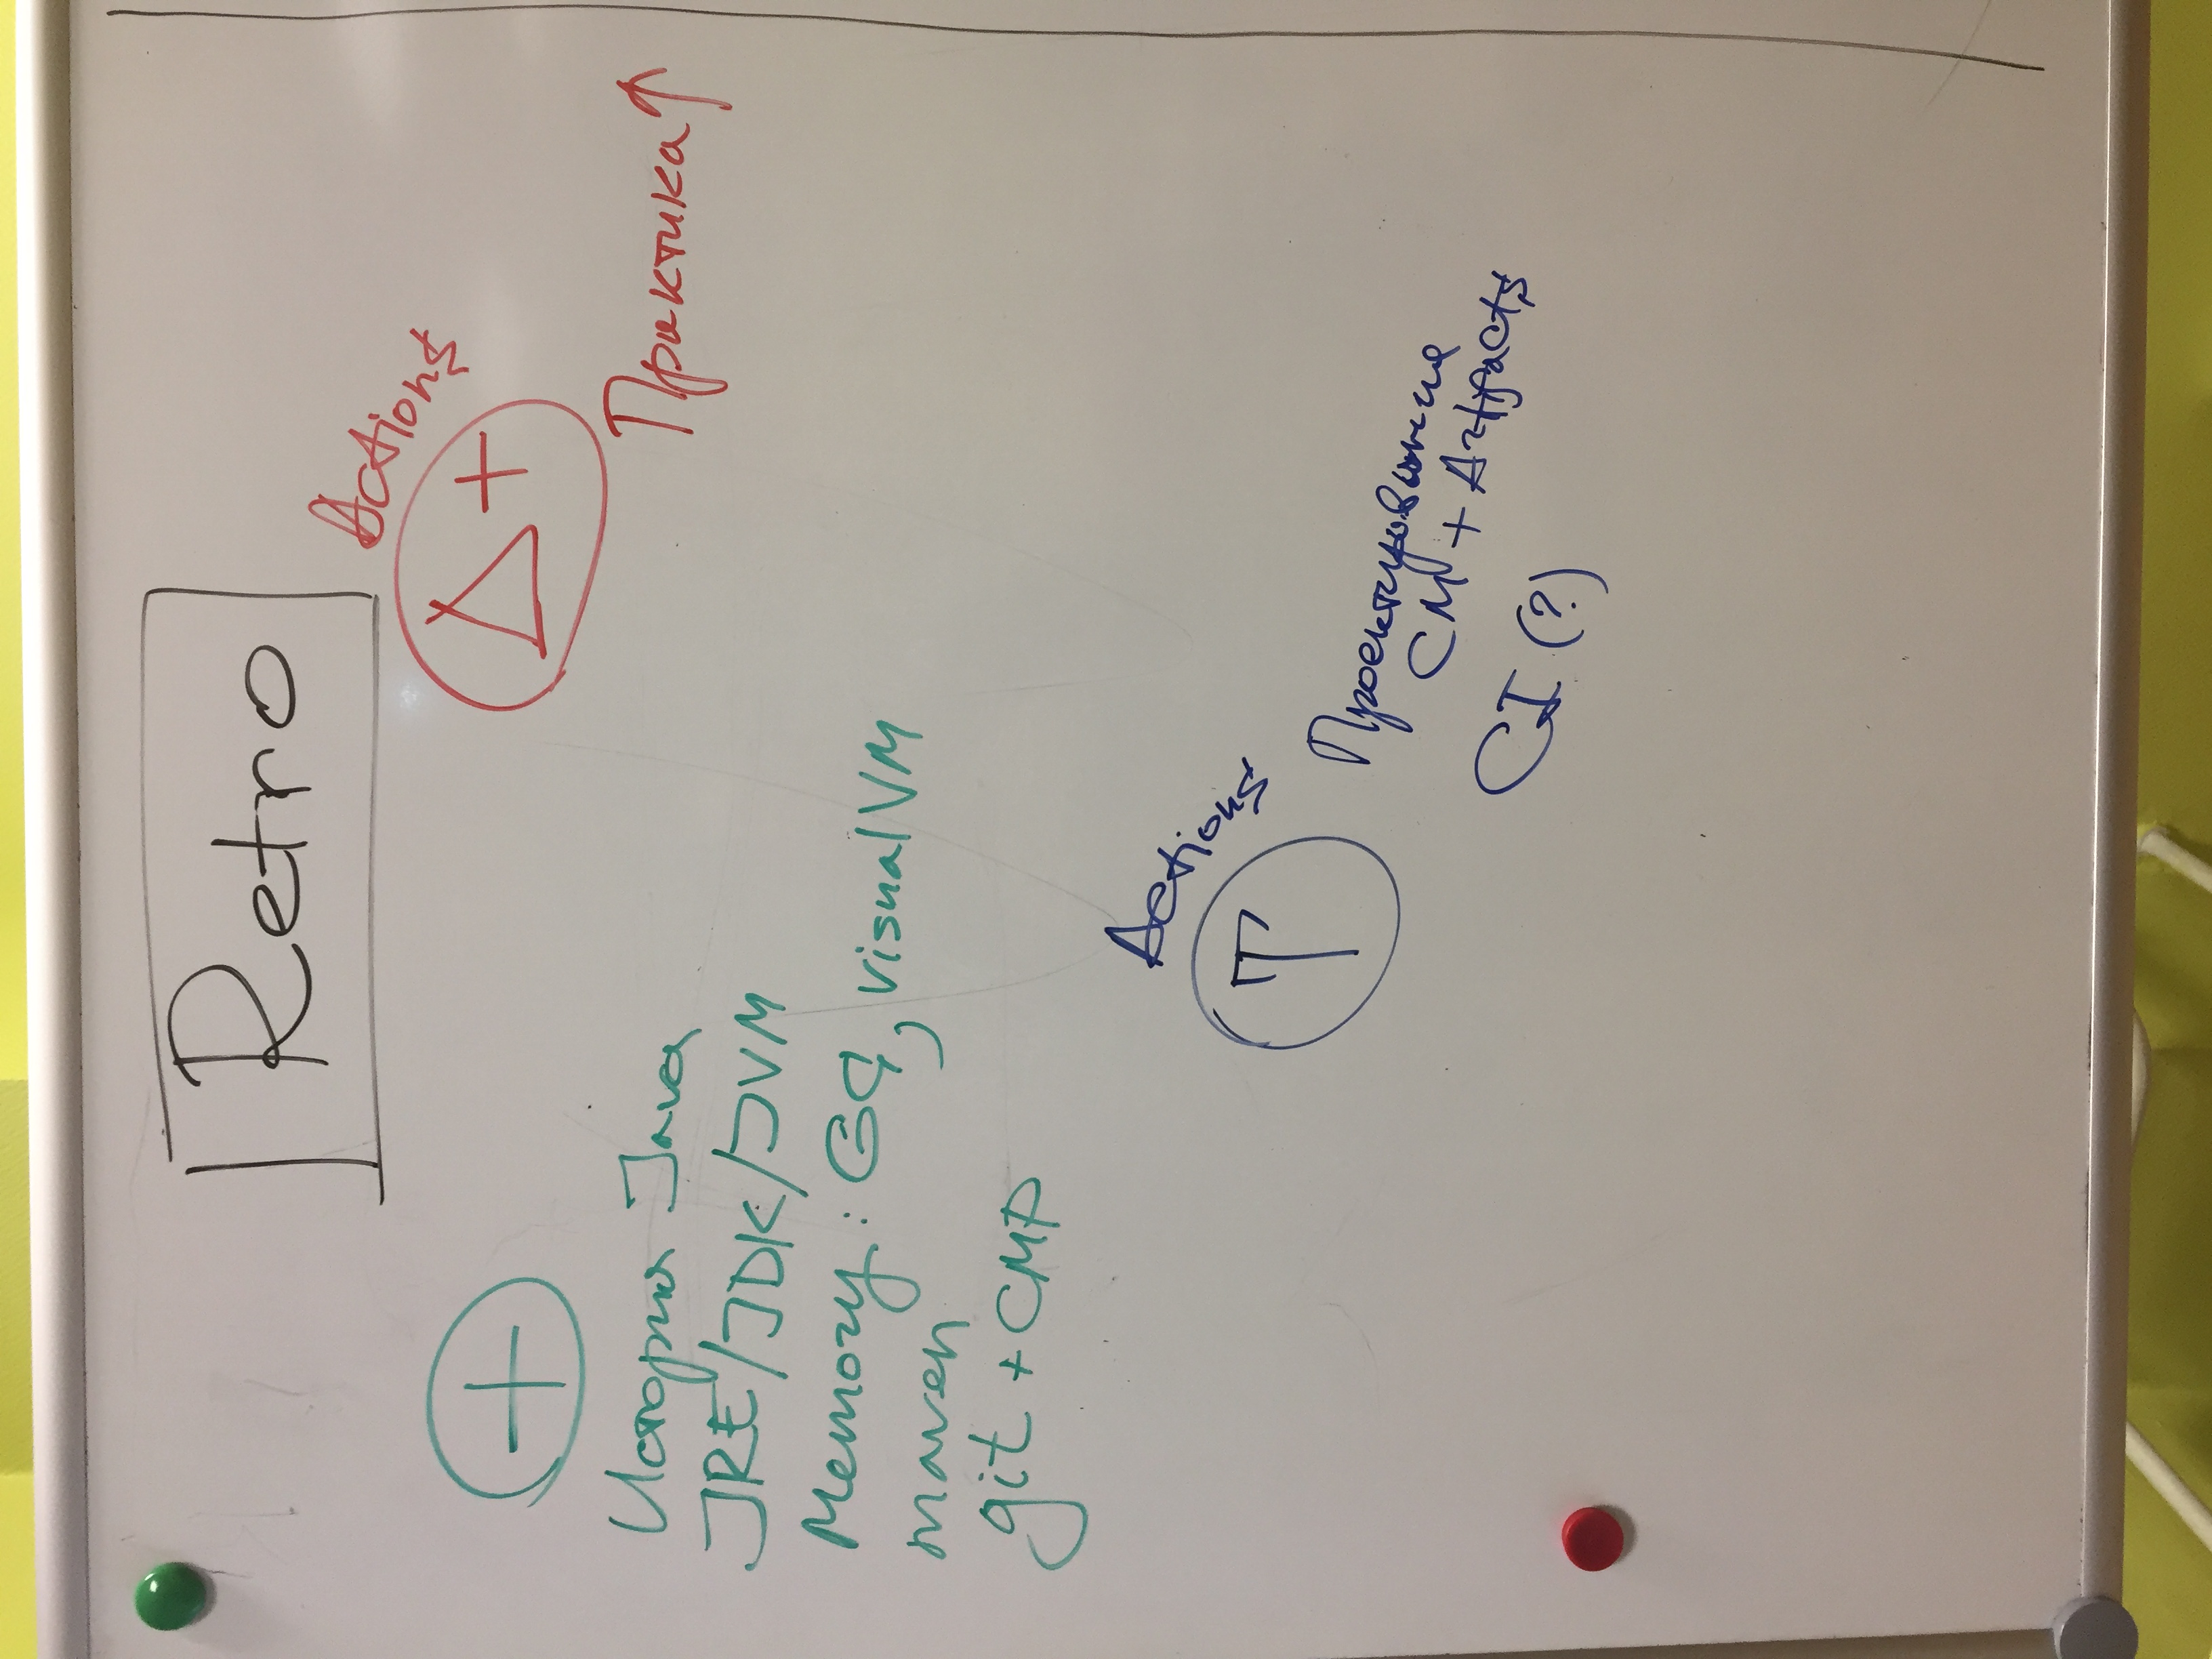 Retro
+
История Java
JRE/JDK/JVM
Memory: GC, visualVM
maven
git + CMP
Actions
Δ +
Практика ↑
Actions
T
Проектирование
CM + Artifacts
CI (?)